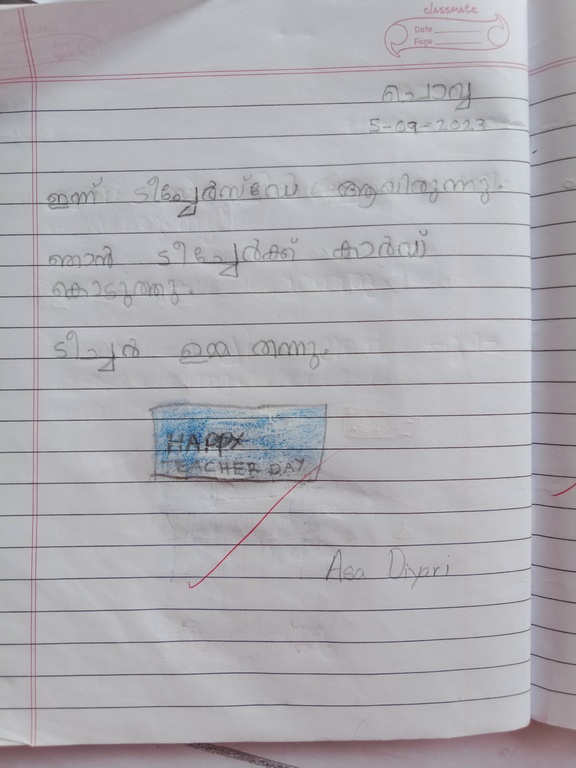 classmate
Date
Page
ചൊവ്വ
5-09-2023
ഇന്ന് ടീച്ചേർസ്ഡേ ആയിരുന്നു.
ഞാൻ ടീച്ചേർക്ക് കാർഡ്
കൊടുത്തു.
ടീച്ചർ ഉമ്മ തന്നു.
HAPPY
TEACHER DAY
Asa Diyari